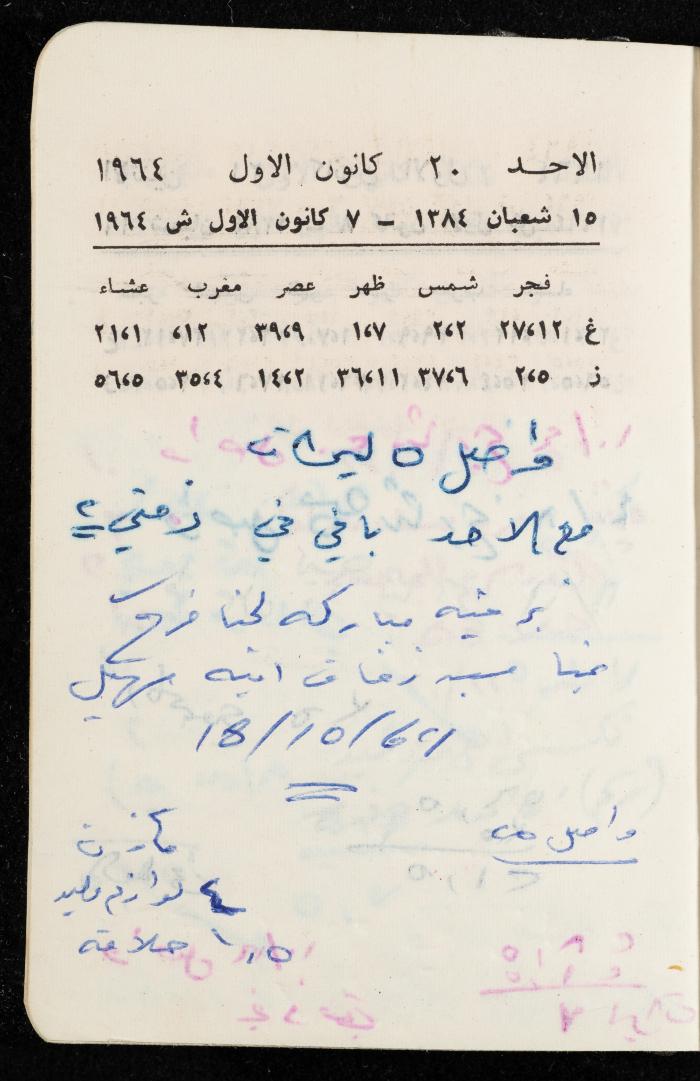 الاحد ٢٠ كانون الاول ١٩٦٤
١٥ شعبان ١٣٨٤ – ٧ كانون الاول ش ١٩٦٤
فجر شمس ظهر عصر مغرب عشاء
غ ١٢،٢٧ ٢،٢ ٧،١ ٩،٣٩ ١٢، ١،٢١
ز ٥،٢ ٦،٣٧ ١١،٣٦ ٢،١٤ ٤،٣٥ ٥،٥٦
واصل ٥ ليرات
مع الاحد باقي في ذمتي
برقيه مباركه لحنا فرح
بمناسبة زفاف ابنه سهيل
18/10/64
واصل
مازن
٤ لوازم وصيد
١،٥ حلاقة